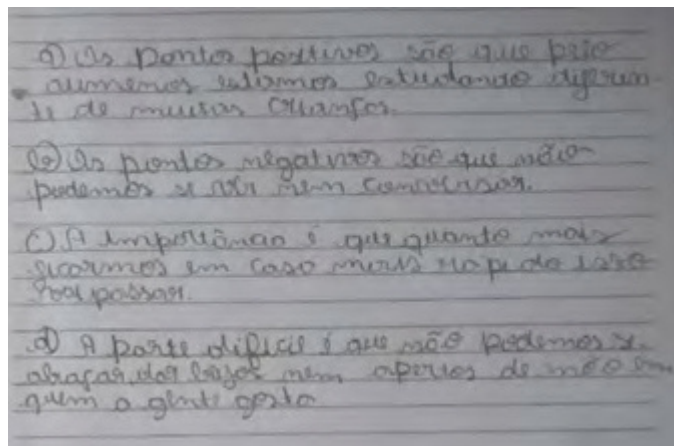 a) Os pontos positivos são que pelo
aumenos estarmos estudando diferen-
te de muitas crianças.
b) Os pontos negativos são que não
podemos se ver nem conversar.
c) A importância é que quanto mais
ficarmos em casa mais rapido isso
vai passar.
d) A parte dificil é que não podemos se
abraçar, dar beijos nem apertos de mão em
quem a gente gosta